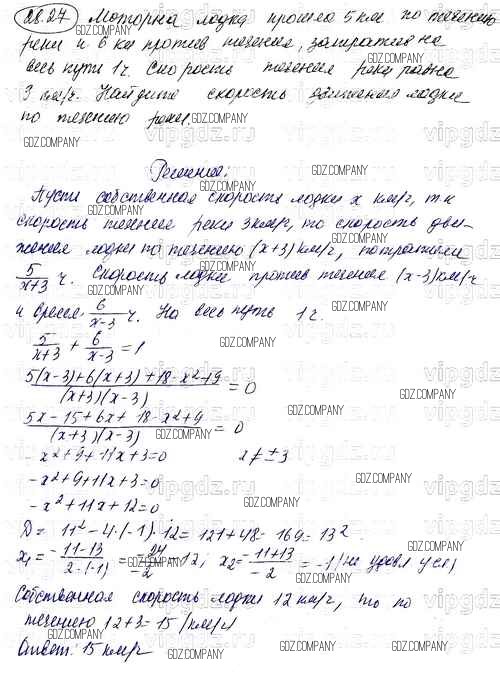 28.27 Моторна лодка прошла 5 км по течению
реки и 6 км против течения, затратив на
весь путь 1 ч. Скорость течения реки равна
3 км/ч. Найдите скорость движения лодки
по течению реки.
Решение:
Пусть собственная скорость лодки x км/ч, т.к
скорость течения реки 3 км/ч, то скорость дви-
жения лодки по течению (x+3) км/ч, потратили
5/(x+3) ч. Скорость лодки против течения (x-3) км/ч
и время 6/(x-3) ч. На весь путь 1 ч.
5/(x+3) + 6/(x-3) = 1
(5(x-3)+6(x+3)+18-x²+9)/((x+3)(x-3)) = 0
(5x-15+6x+18-x²+9)/((x+3)(x-3)) = 0
-x²+9+11x+3=0 x≠±3
-x²+9+11x+3=0
-x²+11x+12=0
D = 11²-4·(-1)·12=121+48=169=13²
x₁=(-11-13)/(2·(-1))=-24/-2=12, x₂=(-11+13)/-2=-1 (не удовл усл)
Собственная скорость лодки 12 км/ч, то по
течению 12+3=15 (км/ч)
Ответ: 15 км/ч
GDZ.COMPANY
vipgdz.ru